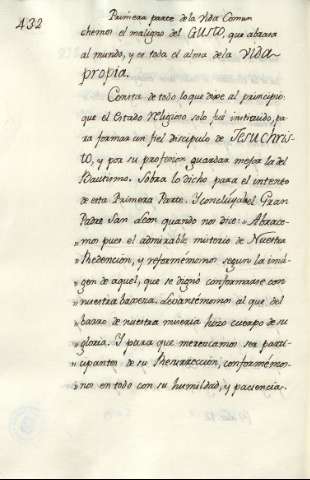 432
Primera parte de la Vida Comun
chemos el maligno del GUSTO, que abrasa
al mundo, y es toda el alma de la VIDA
propia.
Consta de todo lo que dixe al principio:
que el Estado religioso solo fué instituido, pa
ra formar un fiel discipulo de JESUCHRIS-
TO, y por su profesion guardar mejor la del
Bautismo. Sobra lo dicho para el intento
de esta Primera Parte. Y concluyala el Gran
Padre San Leon quando nos dice: „Abrace-
„mos pues el admirable misterio de Nuestra
„Redencion, y reformemonos segun la imá-
„gen de aquel, que se dignó conformarse con
„nuestra baxeza. Levantémonos al que del
„barro de nuestra miseria hizo cuerpo de su
„gloria. Y para que merezcamos ser parti-
„cipantes de su Resurrección, conformémo-
„nos en todo con su humildad, y paciencia.